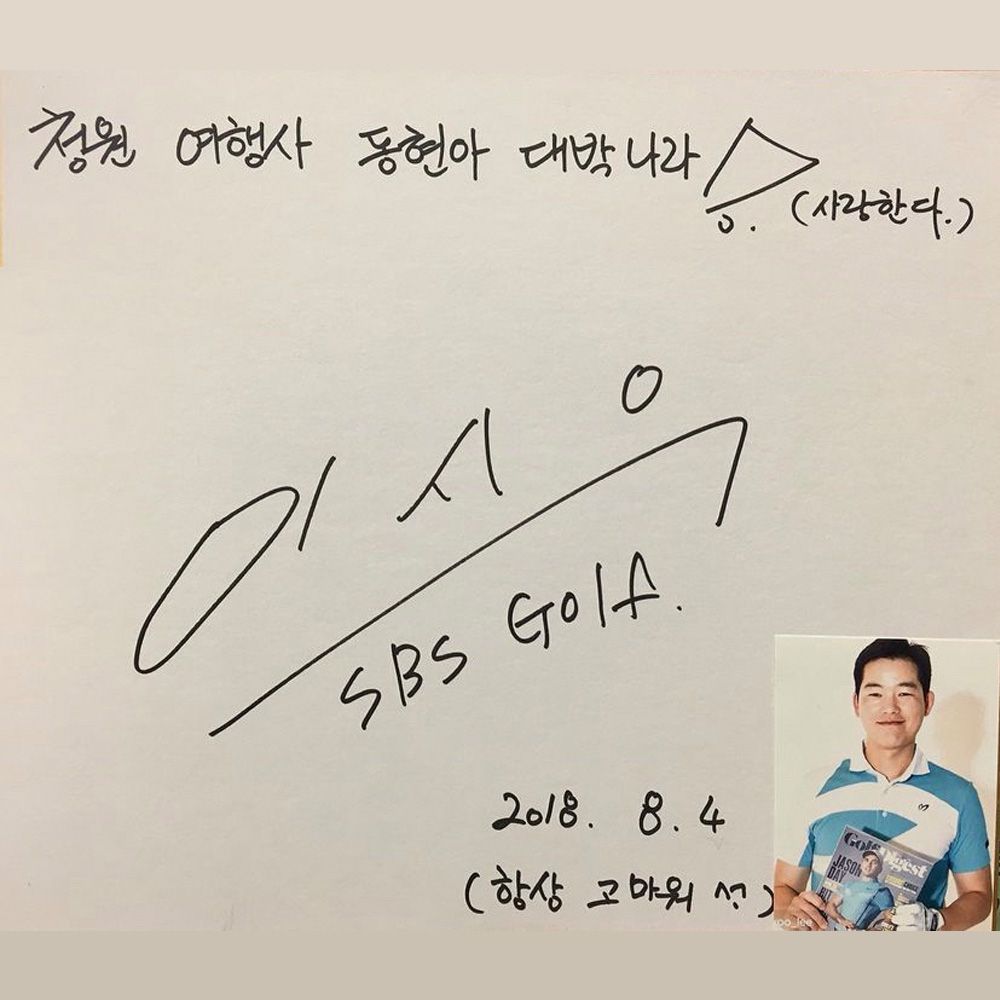 청원 여행사 동현아 대박나라
(사랑한다.)
이시우
SBS Golf.
2018. 8. 4
(항상 고마워
Golf Digest
JASON
DAY
oo_lee